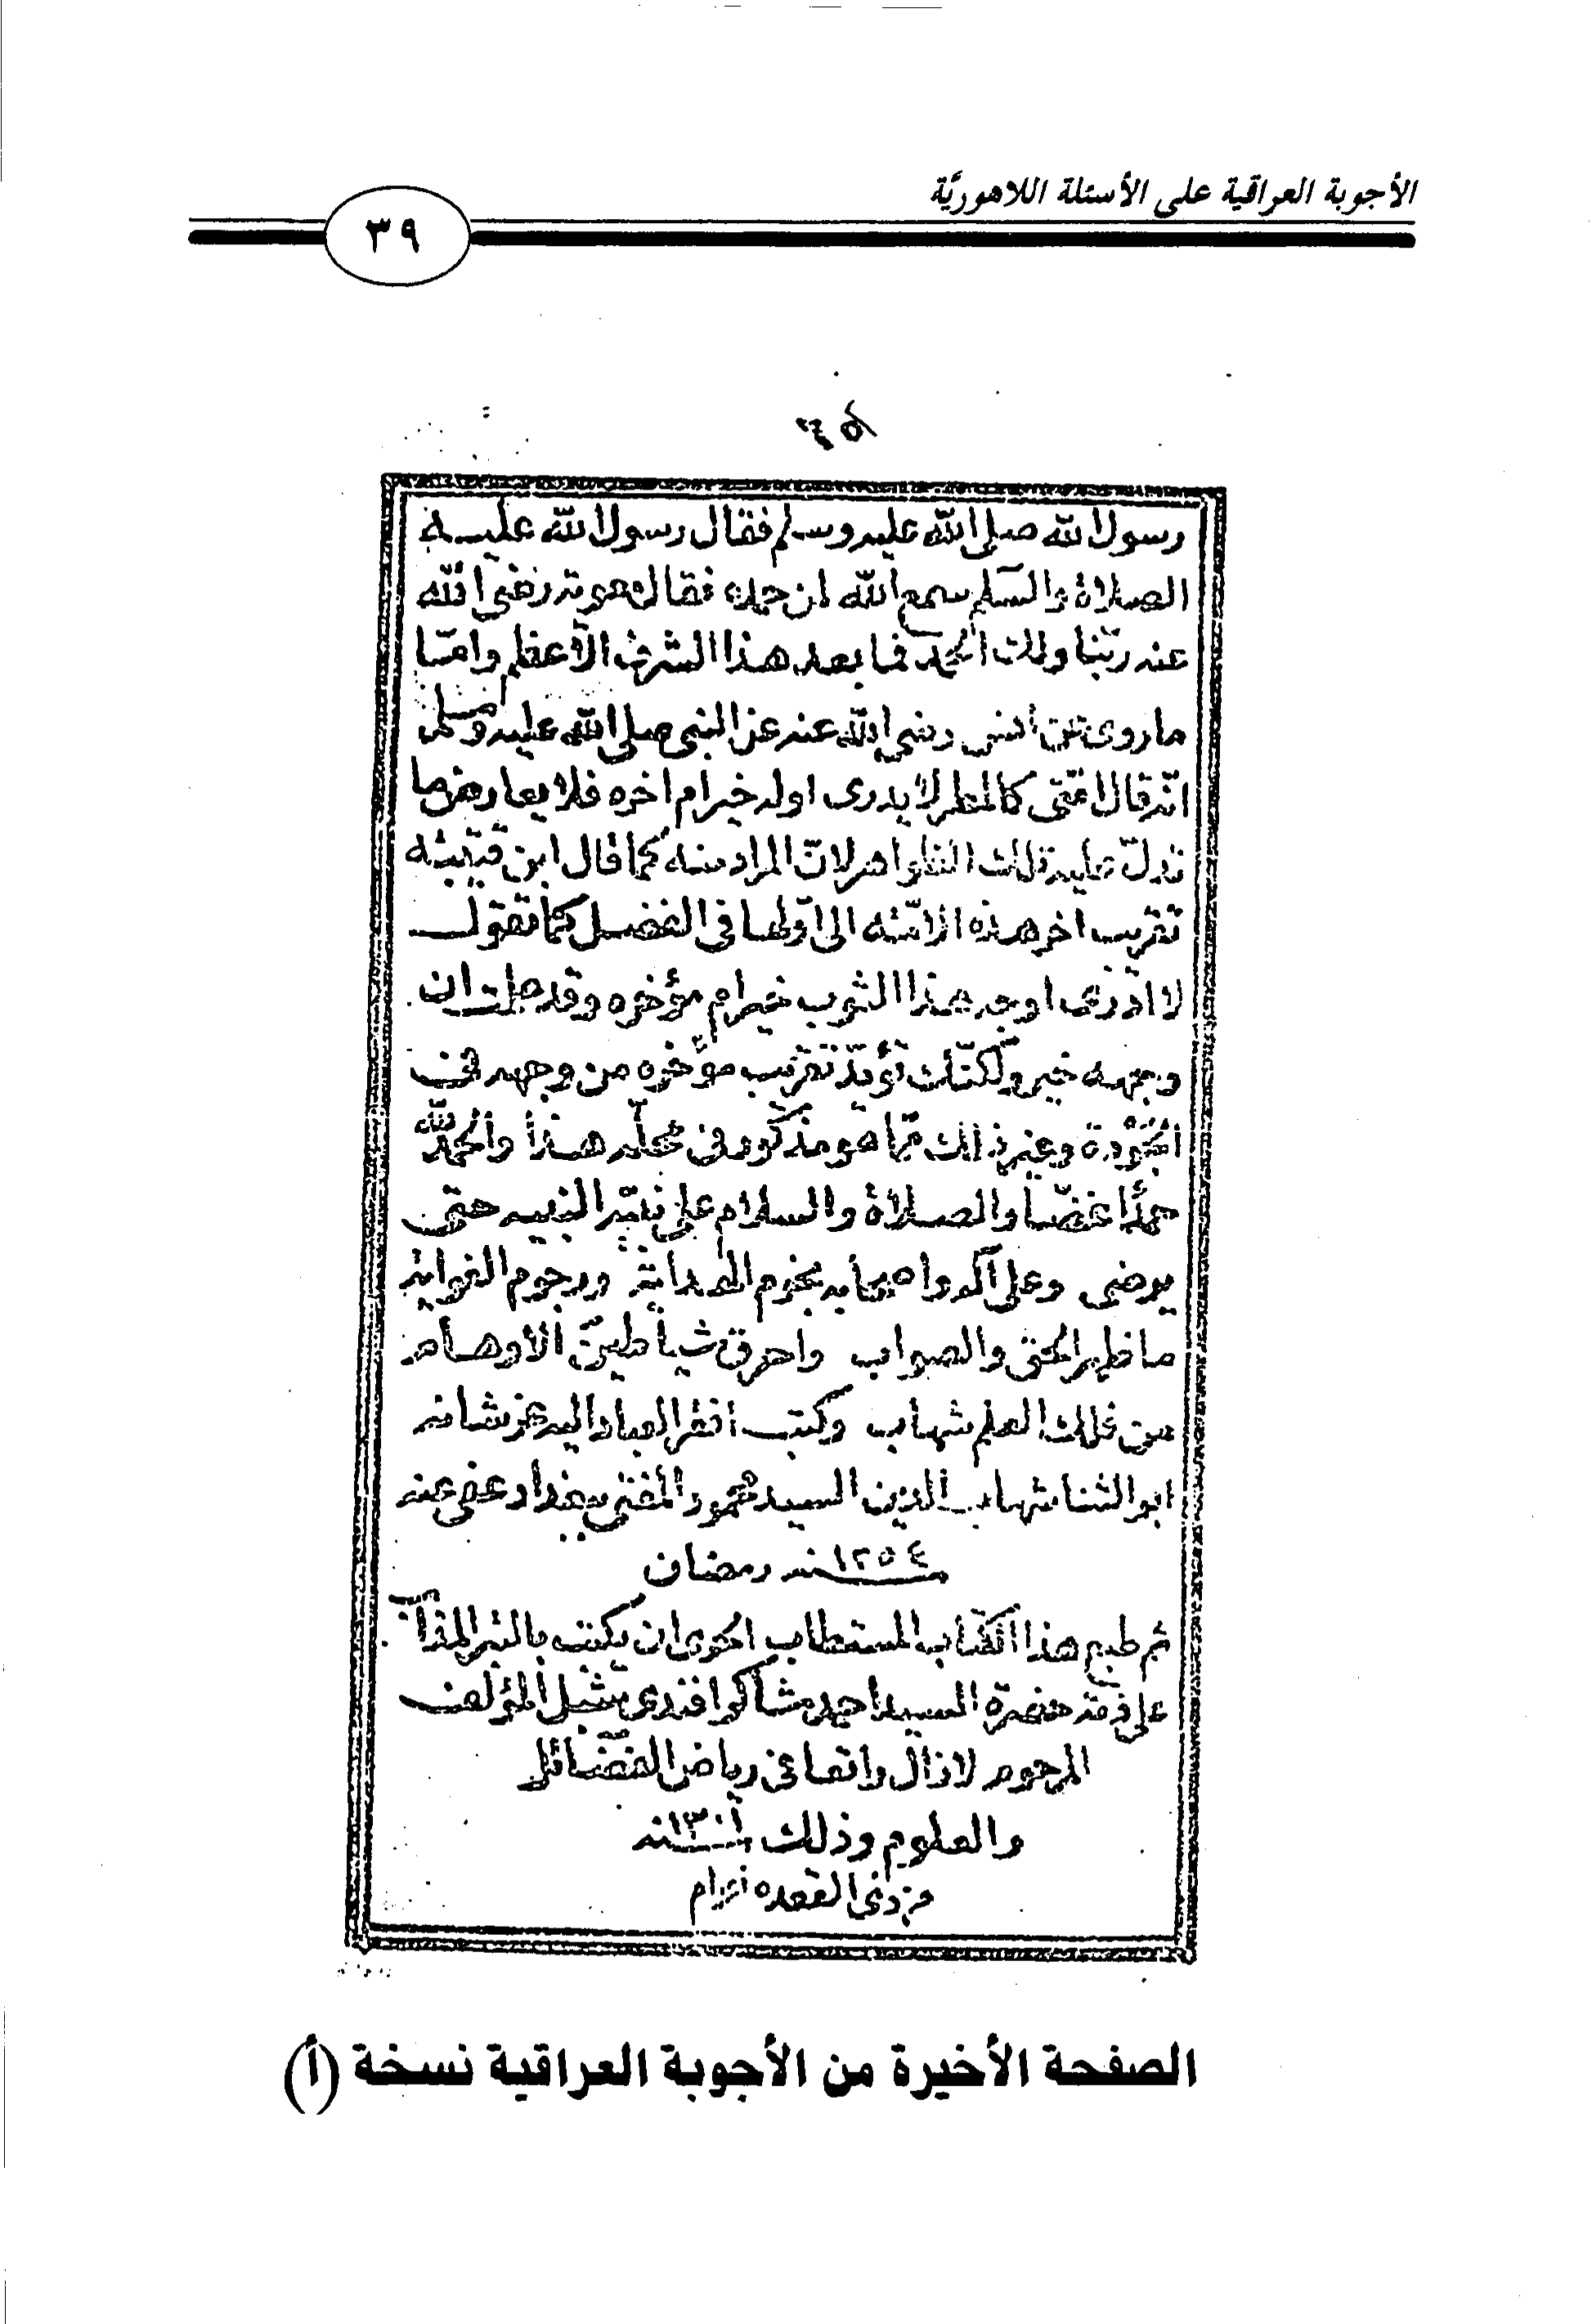 الأجوبة العراقية على الأسئلة اللاهوريَّة
٣٩
رسول الله صلى الله عليه وسلم فقال رسول الله عليه
الصلاة والسلم سمع الله لمن حمده فقال معوية رضي الله
عنه ربّنا ولك الحمد فما بعد هذا الشرف الأعظم وامّا
ما روى عن انس رضي الله عنه عن النبي صلى الله عليه وسلم
انّه قال امّتى كالمطر لا يدرى اوله خير ام اخره فلا يعارض ما
تدلّ عليه تلك الظواهر لانّ المراد منه كما قال ابن قتيبه
تقريب اخر هذه الامّه الى اوّلها في الفضل كما تقول
لا ادرى اوجه هذا الثوب خير ام مؤخره وقد علمت ان
وجهه خير ولكنّك تريد تقريب مؤخره من وجهه في
الجودة وغير ذلك ممّا هو مذكور في محلّه هذا والحمد لله
حمدًا غضًّا والصلاة والسلام على نبيّه النبيه حتى
يرضى وعلى آله واصحابه نجوم الهداية ورجوم الغوايه
ما ظهر الحق والصواب واحرق شياطين الأوهام
من فلك العلم شهاب وكتب افقر العباد اليه عز شانه
ابو الثنا شهاب الدين السيد محمود المفتى ببغداد عفى عنه
١٢٥٤ سنه رمضان
تم طبع هذا الكتاب المستطاب الحرى ان يكتب بالتبر المذاب
على ذمة حضرة السيد احمد شاكر افندى شبل المؤلف
المرحوم لا زال راتعا في رياض الفضائل
والعلوم وذلك سنه ١٣٠١
من ذى القعده
الصفحة الأخيرة من الأجوبة العراقية نسخة (أ)